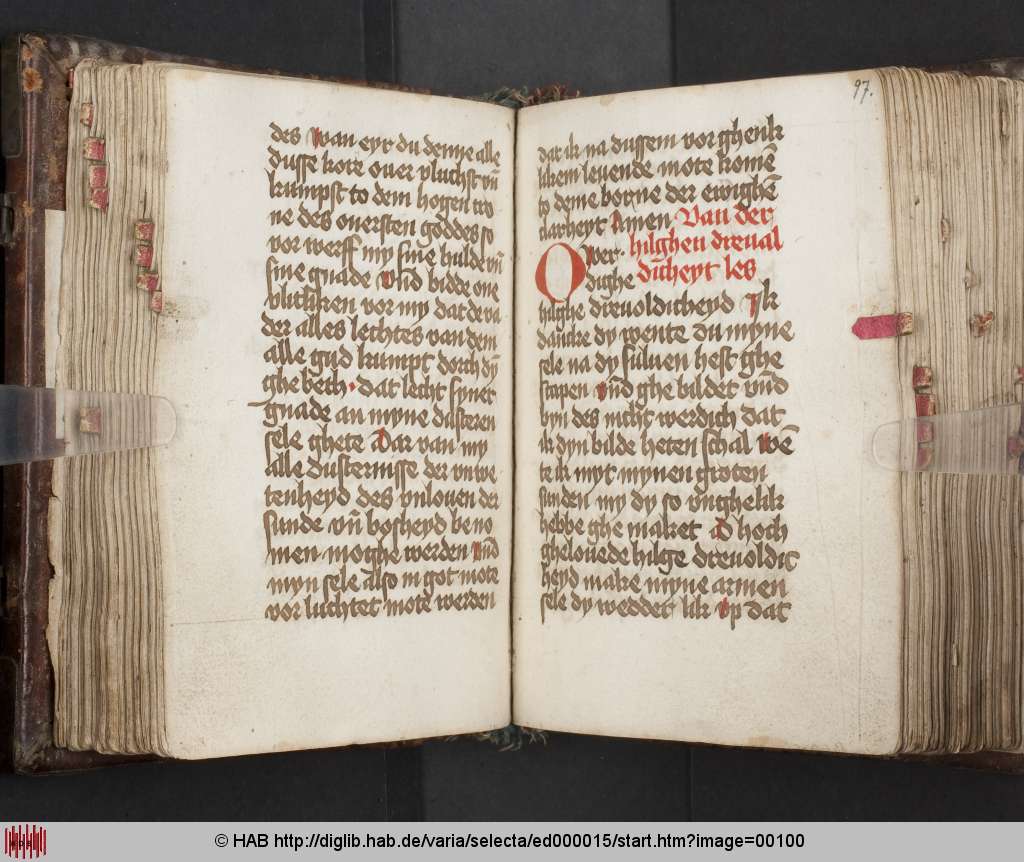 des wan eyr du denne alle
dusse kore ouer vluchst vn̄
krumpst to dem hogen tro
ne des ouersten goddes so
vor werff my sine hulde vn̄
sine gnade vnd bidde one
vlitliken vor my dat de va
der alles lechtes van dem
alle gud kumpt dorch dy̅
ghe beth · dat lecht syner
gnade an myne dusteren
sele ghete dar van my
alle dusternisse der vnwe
tenheyd des vnlouen der
sunde vn̄ bosheyd be no
men moghe werden vnd
myn sele also in got mote
vor luchtet mote werden
97.
dat ik na dussem vor ghenk
likem leuende mote kome̅
to deme borne der ewighe̅
clarheyt Amen Van der
hilghen dreual
dicheyt les
Ower
dighe
hilghe dreuoldicheyd Ik
dancke dy wente du myne
sele na dy suluen hest ghe
scapen vnd ghe bildet vnd
byn des nicht werdich dat
ik dyn bilde heten schal we̅
te ik myt mynen groten
sunden my dy so vnghelik
hebbe ghe maket O hoch
ghelouede hilge dreuoldic
heyd make myne armen
sele dy wedder lik vp dat
© HAB http://diglib.hab.de/varia/selecta/ed000015/start.htm?image=00100